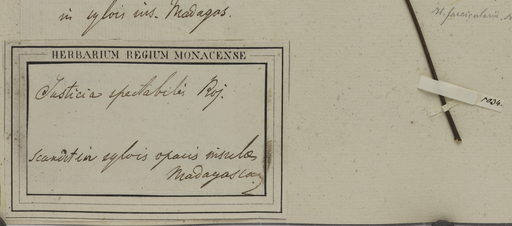 in sylvis ins. Madagas.
H. fascicularis.
HERBARIUM REGIUM MONACENSE
Justicia spectabilis Boj.
scandit in sylvis opacis insulae
Madagascar